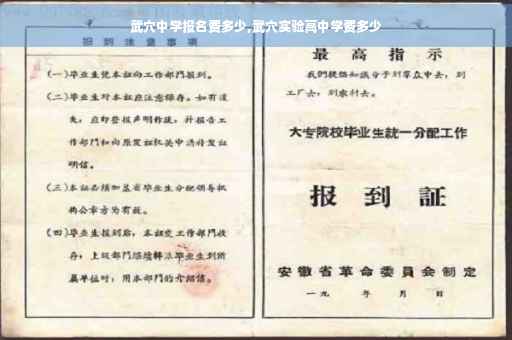 武穴中学报名费多少,武穴实验高中学费多少
报到注意事项
(一)毕业生凭本证向工作部門报到。
(二)毕业生对本证应注意保存。如有遗
失,应即登报声明作废,并报告工
作部門和向原发证机关申請补发证
明信。
(三)本证必须加盖省毕业生分配领导机
构公章方为有效。
(四)毕业生报到后,本证交工作部門收
存;上级部門
毕业生到所
属单位时,用本部門的介绍信。
最高指示
我們提倡知識分子到羣众中去,到
工厂去,到农村去。
大专院校毕业生統一分配工作
报到証
安徽省革命委員会制定
一九 年 月 日